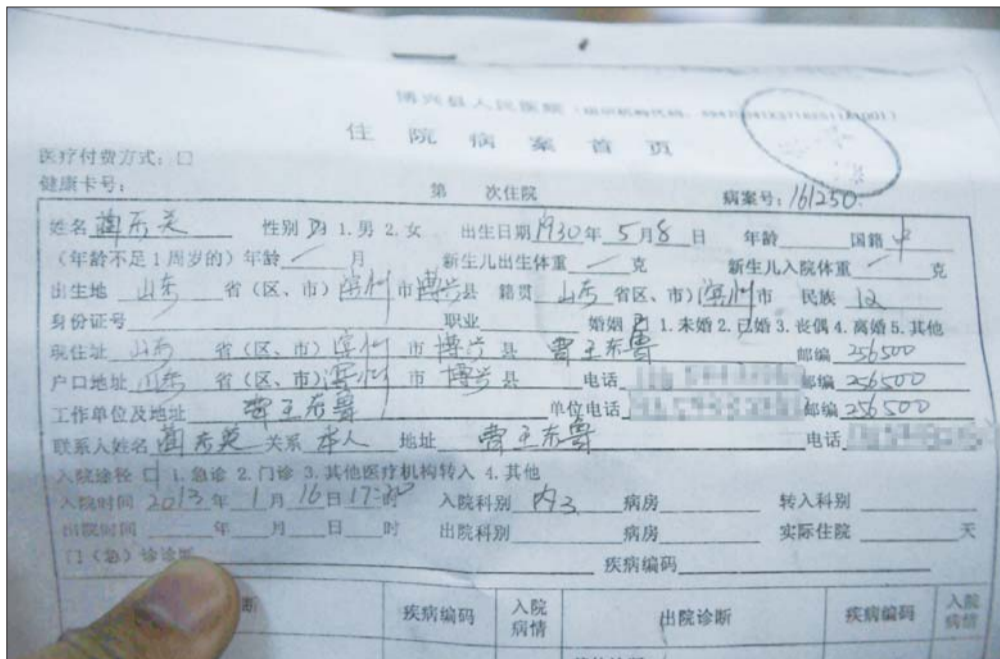 博兴县人民医院（组织机构代码：
住 院 病 案 首 页
医疗付费方式：□
健康卡号： 第 次住院 病案号：161250
姓名 性别 1.男 2.女 出生日期1930年 5月8日 年龄 国籍 中
（年龄不足1周岁的）年龄 / 月 新生儿出生体重 / 克 新生儿入院体重 / 克
出生地 山东 省（区、市）滨州市博兴县 籍贯 山东 省区、市）滨州市 民族 汉
身份证号 职业 婚姻 1.未婚 2.已婚 3.丧偶 4.离婚 5.其他
现住址 山东 省（区、市）滨州 市 博兴 县 曹王东鲁 邮编 256500
户口地址 山东 省（区、市）滨州 市 博兴 县 电话 邮编 256500
工作单位及地址 曹王东鲁 单位电话 邮编 256500
联系人姓名 关系 本人 地址 曹王东鲁 电话
入院途径 □ 1.急诊 2.门诊 3.其他医疗机构转入 4.其他
入院时间 2013年 1月 16日17 时 入院科别 内3 病房 转入科别
出院时间 年 月 日 时 出院科别 病房 实际住院 天
门（急）诊诊断 疾病编码
断 疾病编码 入院病情 出院诊断 疾病编码 入院病情